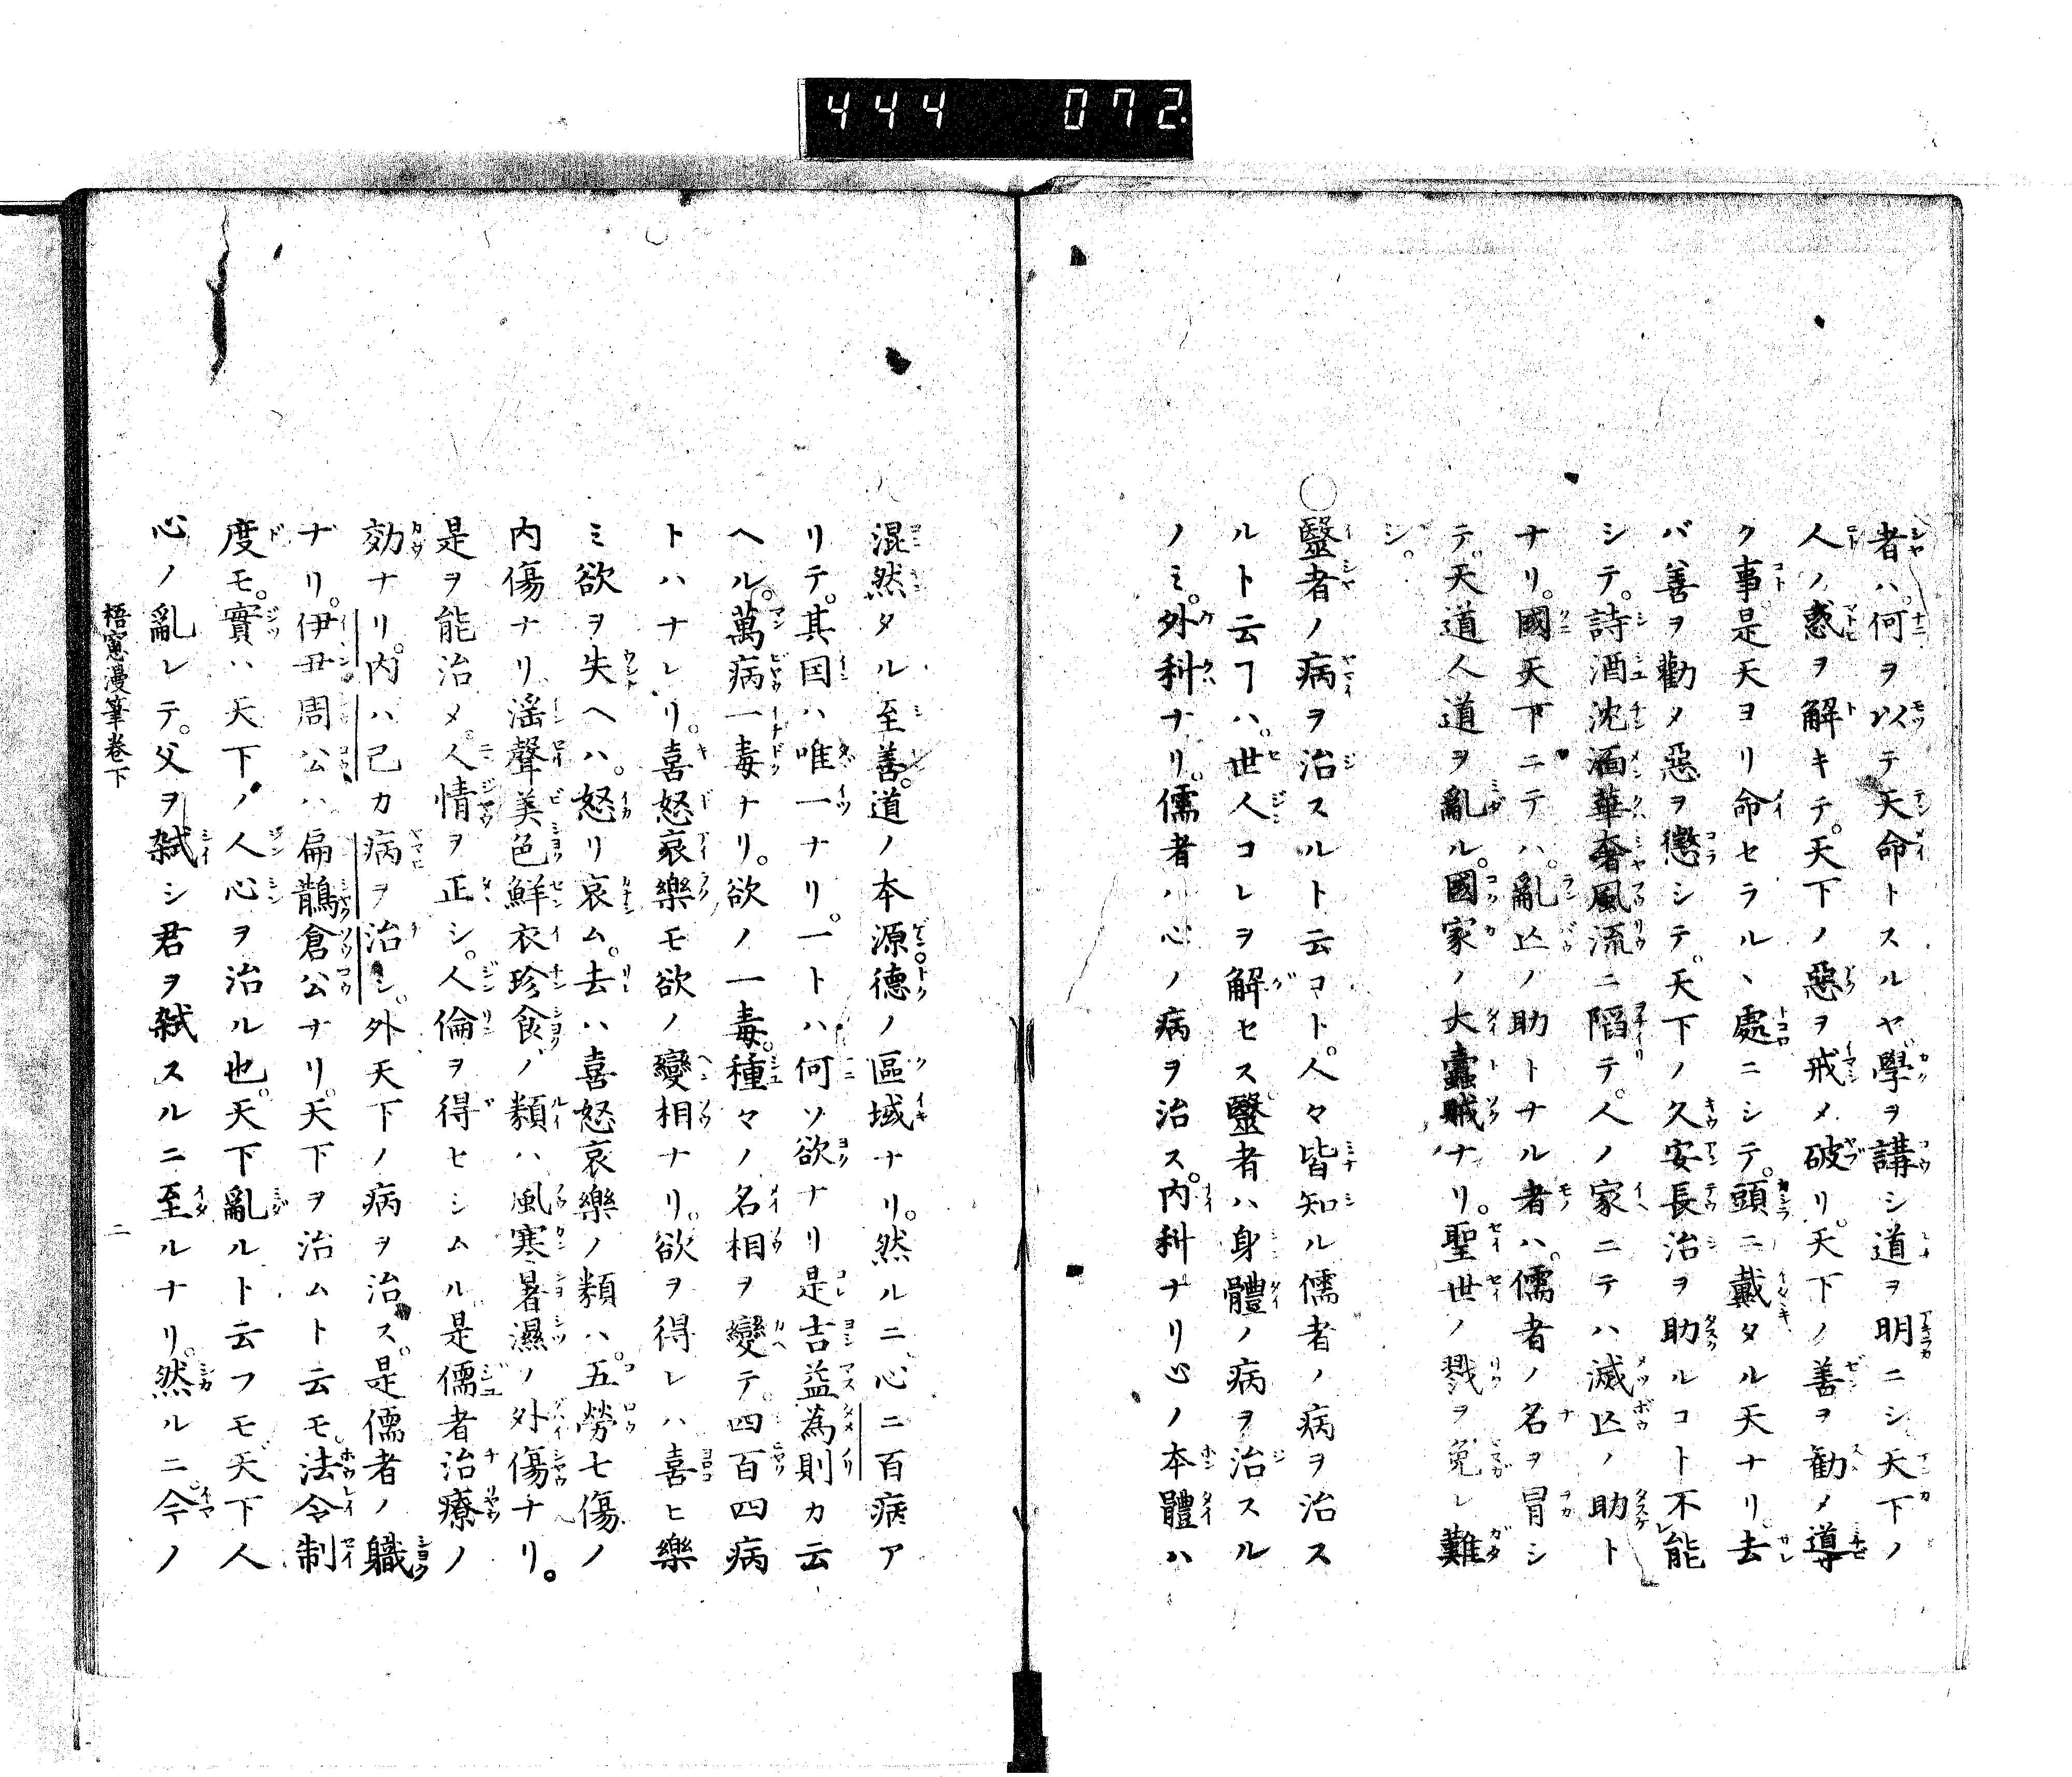 444 072.
者ハ。何ヲ以テ天命トスルヤ。學ヲ講シ道ヲ明ニシ天下ノ
人ノ惑ヲ解キテ。天下ノ惡ヲ戒メ破リ。天下ノ善ヲ勸メ導
ク事。是天ヨリ命セラルヽ處ニシテ。頭ニ戴タル天ナリ。去
バ善ヲ勸メ惡ヲ懲シテ。天下ノ久安長治ヲ助ルコト不能
シテ。詩酒沈湎華奢風流ニ陷テ。人ノ家ニテハ滅亡ノ助ト
ナリ。國天下ニテハ。亂亡ノ助トナル者ハ。儒者ノ名ヲ冒シ
テ。天道人道ヲ亂ル。國家ノ大蠹賊ナリ。聖世ノ戮ヲ免レ難
シ。
○醫者ノ病ヲ治スルト云コト。人々皆知ル儒者ノ病ヲ治ス
ルト云ヿハ。世人コレヲ解セス。醫者ハ身體ノ病ヲ治スル
ノミ。外科ナリ。儒者ハ心ノ病ヲ治ス。内科ナリ心ノ本體ハ
混然タル至善。道ノ本源德ノ區域ナリ。然ルニ心ニ百病ア
リテ。其因ハ唯一ナリ。一トハ何ソ欲ナリ是吉益為則カ云
ヘル。萬病一毒ナリ。欲ノ一毒。種々ノ名相ヲ變テ。四百四病
トハナレリ。喜怒哀樂モ欲ノ變相ナリ。欲ヲ得レハ喜ヒ樂
ミ欲ヲ失ヘハ。怒リ哀ム。去ハ喜怒哀樂ノ類ハ。五勞七傷ノ
内傷ナリ淫聲美色鮮衣珍食ノ類ハ風寒暑濕ノ外傷ナリ。
是ヲ能治メ。人情ヲ正シ。人倫ヲ得セシムル是儒者治療ノ
効ナリ。内ハ己カ病ヲ治シ。外天下ノ病ヲ治ス。是儒者ノ職
ナリ。伊尹周公ハ扁鵲倉公ナリ。天下ヲ治ムト云モ。法令制
度モ。實ハ天下ノ人心ヲ治ル也。天下亂ルト云フモ天下人
心ノ亂レテ。父ヲ弑シ君ヲ弑スルニ至ルナリ。然ルニ。今ノ
梧窻漫筆卷下 二